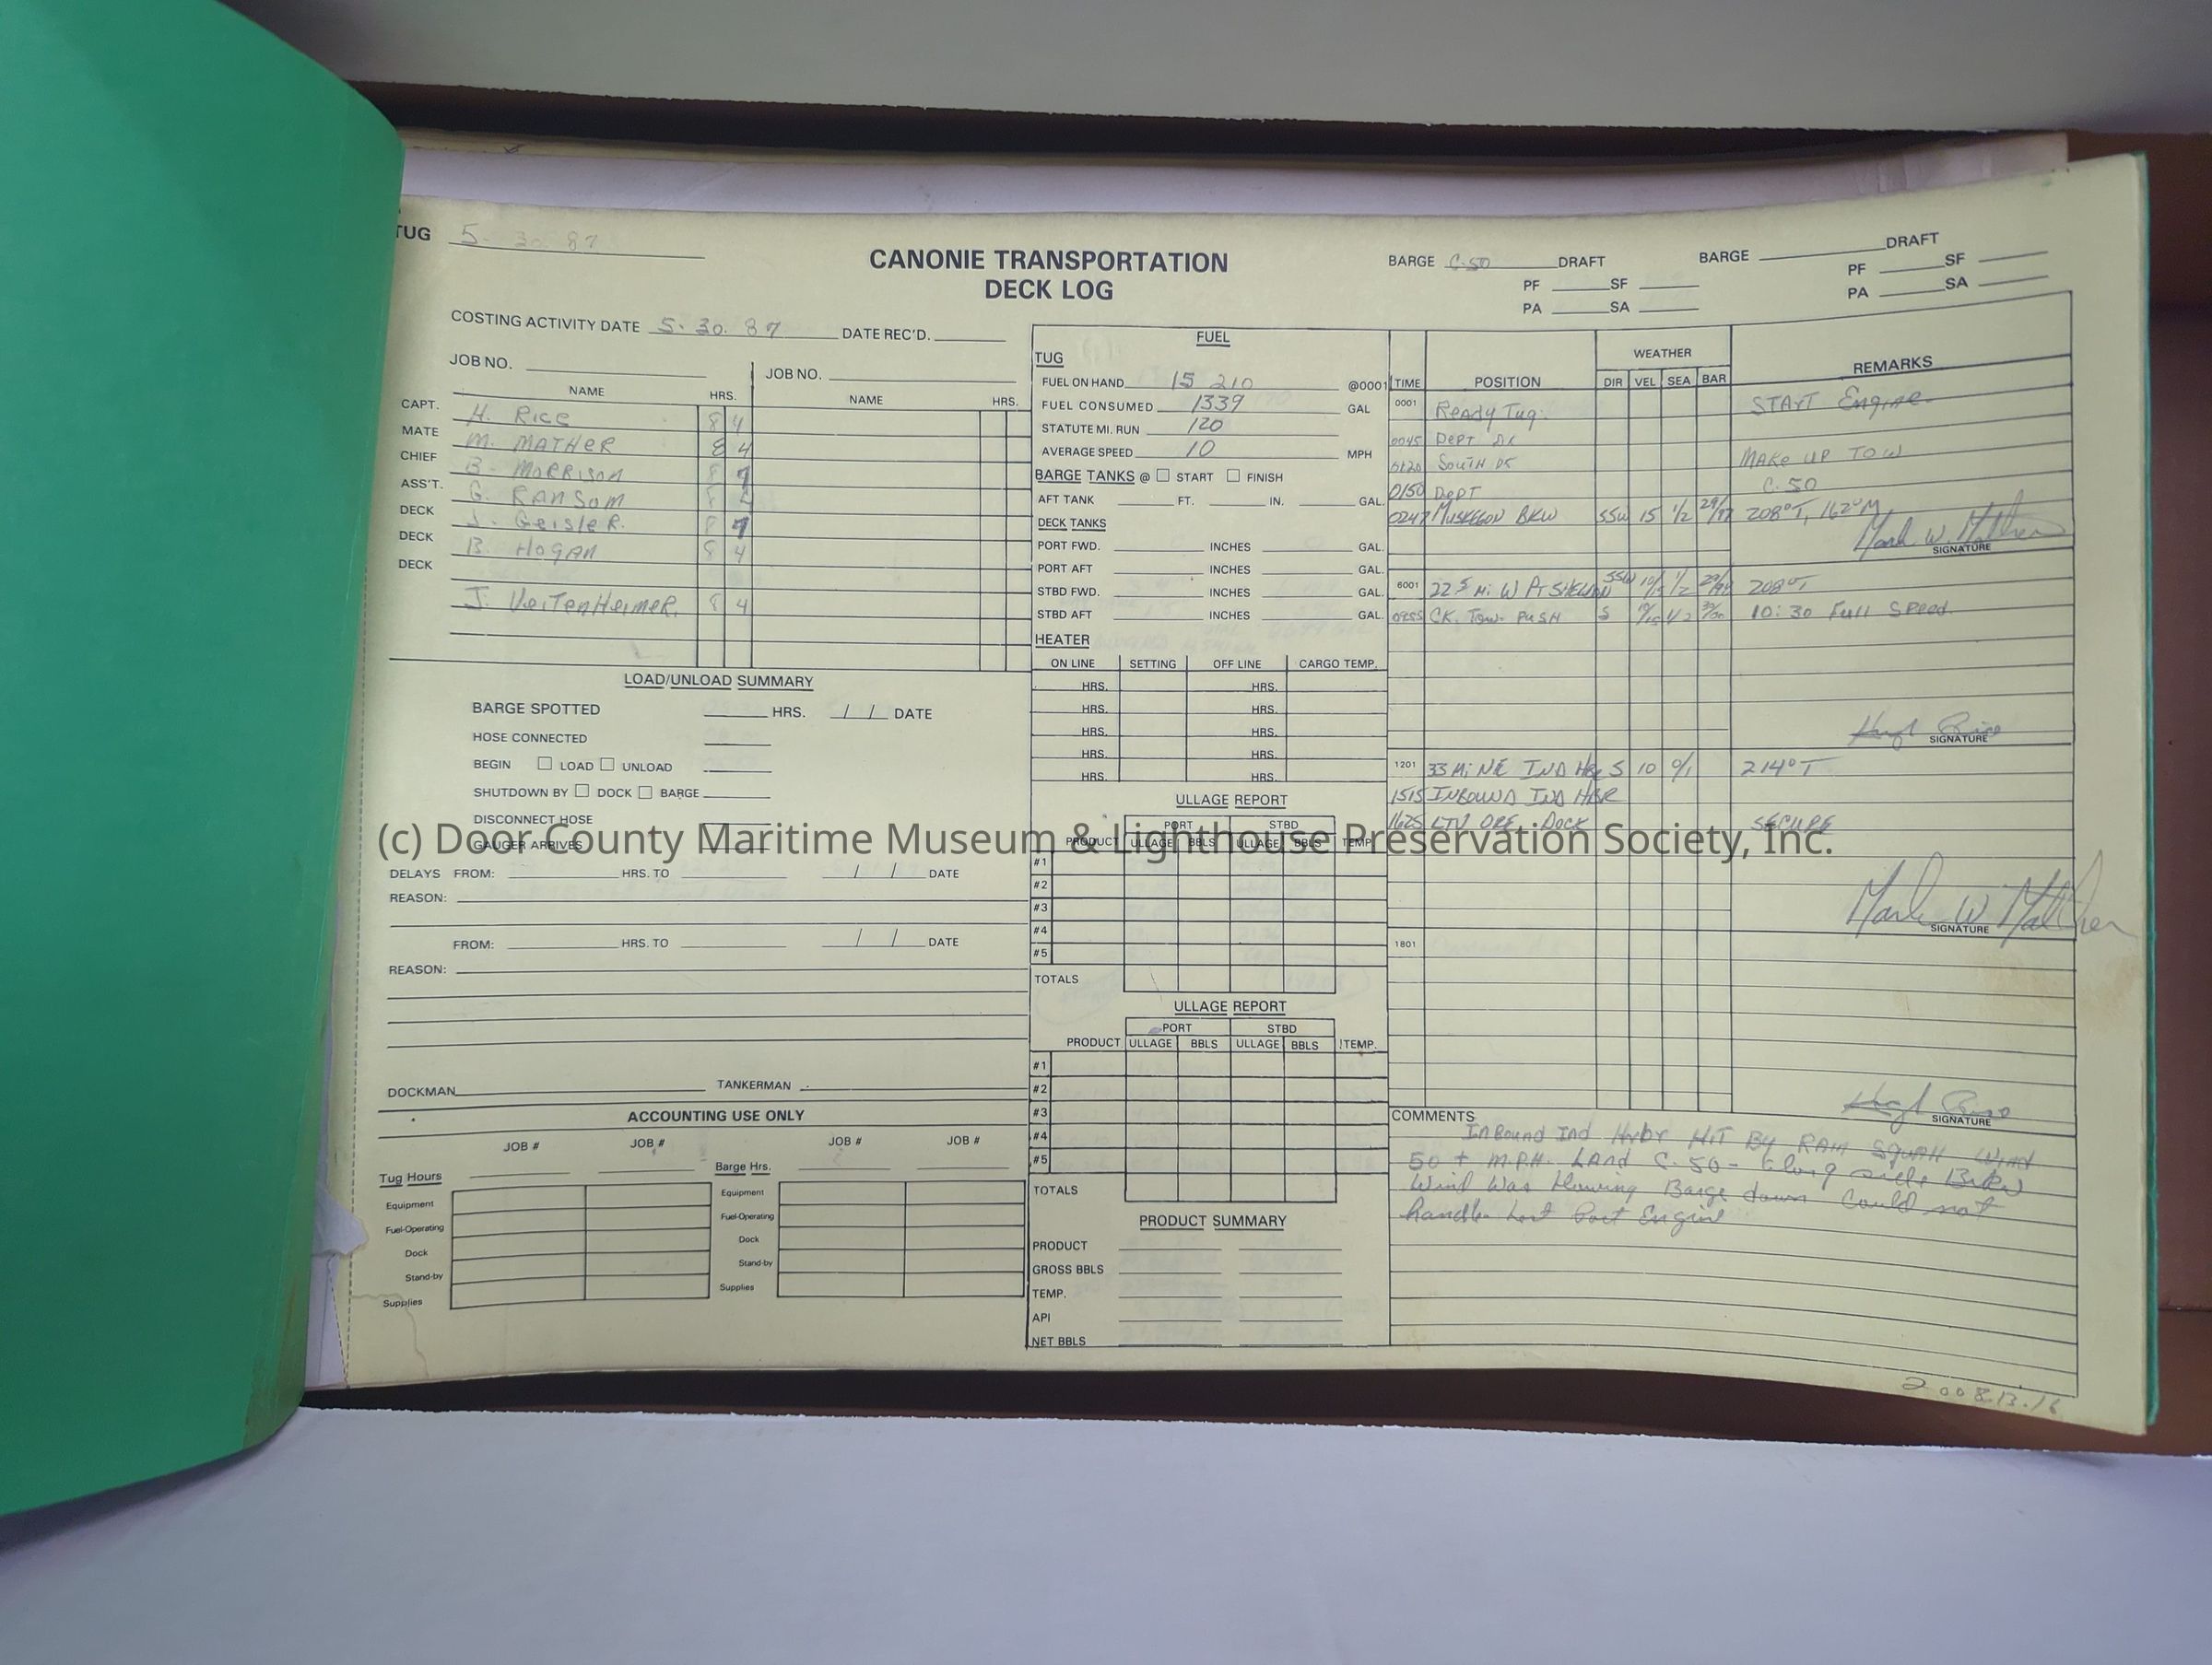 TUG 5- 30. 87
CANONIE TRANSPORTATION
DECK LOG
BARGE C-50 DRAFT
PF SF
PA SA
BARGE DRAFT
PF SF
PA SA
COSTING ACTIVITY DATE 5. 30. 87 DATE REC'D.
JOB NO. JOB NO.
NAME HRS. NAME HRS.
CAPT. H. RICE 8 4
MATE M. MATHER 8 4
CHIEF B. MORRISON 8
ASS'T. G. RANSOM 8
DECK J. Geisler.
DECK B. HOGAN 8 4
DECK
J. VeiTenHeimeR. 8 4
LOAD/UNLOAD SUMMARY
BARGE SPOTTED HRS. / / DATE
HOSE CONNECTED
BEGIN LOAD UNLOAD
SHUTDOWN BY DOCK BARGE
DISCONNECT HOSE
GAUGER ARRIVES
DELAYS FROM: HRS. TO / / DATE
REASON:
FROM: HRS. TO / / DATE
REASON:
DOCKMAN TANKERMAN
ACCOUNTING USE ONLY
JOB # JOB # JOB # JOB #
Tug Hours Barge Hrs.
Equipment Equipment
Fuel-Operating Fuel-Operating
Dock Dock
Stand-by Stand-by
Supplies Supplies
FUEL
TUG
FUEL ON HAND 15 210 @0001
FUEL CONSUMED 1339 GAL
STATUTE MI. RUN 120
AVERAGE SPEED 10 MPH
BARGE TANKS @ START FINISH
AFT TANK FT. IN. GAL.
DECK TANKS
PORT FWD. INCHES GAL.
PORT AFT INCHES GAL.
STBD FWD. INCHES GAL.
STBD AFT INCHES GAL.
HEATER
ON LINE SETTING OFF LINE CARGO TEMP.
HRS. HRS.
HRS. HRS.
HRS. HRS.
HRS. HRS.
HRS. HRS.
ULLAGE REPORT
PORT STBD
PRODUCT ULLAGE BBLS ULLAGE BBLS TEMP.
#1
#2
#3
#4
#5
TOTALS
ULLAGE REPORT
PORT STBD
PRODUCT ULLAGE BBLS ULLAGE BBLS TEMP.
#1
#2
#3
#4
#5
TOTALS
PRODUCT SUMMARY
PRODUCT
GROSS BBLS
TEMP.
API
NET BBLS
WEATHER
TIME POSITION DIR VEL SEA BAR REMARKS
0001 Ready Tug. START Engine
0045 DepT DK
0120 South DK MAKE UP TOW
0150 DepT C-50
0247 MUSKEGON BKW SSW 15 1/2 208°T, 162°M
Mark W. Mather
SIGNATURE
6001 22 5 Mi W PT SHELDON SSW 10/15 1/2 208°T
0955 CK. Tow- PUSH S 10/15 1/2 10:30 Full Speed.
Hugh Rice
SIGNATURE
1201 33 Mi NE IND Hbr S 10 0/1 214°T
1515 INBOUND IND HBR
1625 LTV ORE DOCK SECURE
Mark W Mather
SIGNATURE
1801
Hugh Rice
SIGNATURE
COMMENTS
InBound Ind Hrbr HiT By RAin SquAll Wind
50 + M.P.H. LAnd C.50- Along side
Wind Was Blowing Barge down Could not
handle Lost Port Engine
2008.13.16
(c) Door County Maritime Museum & Lighthouse Preservation Society, Inc.